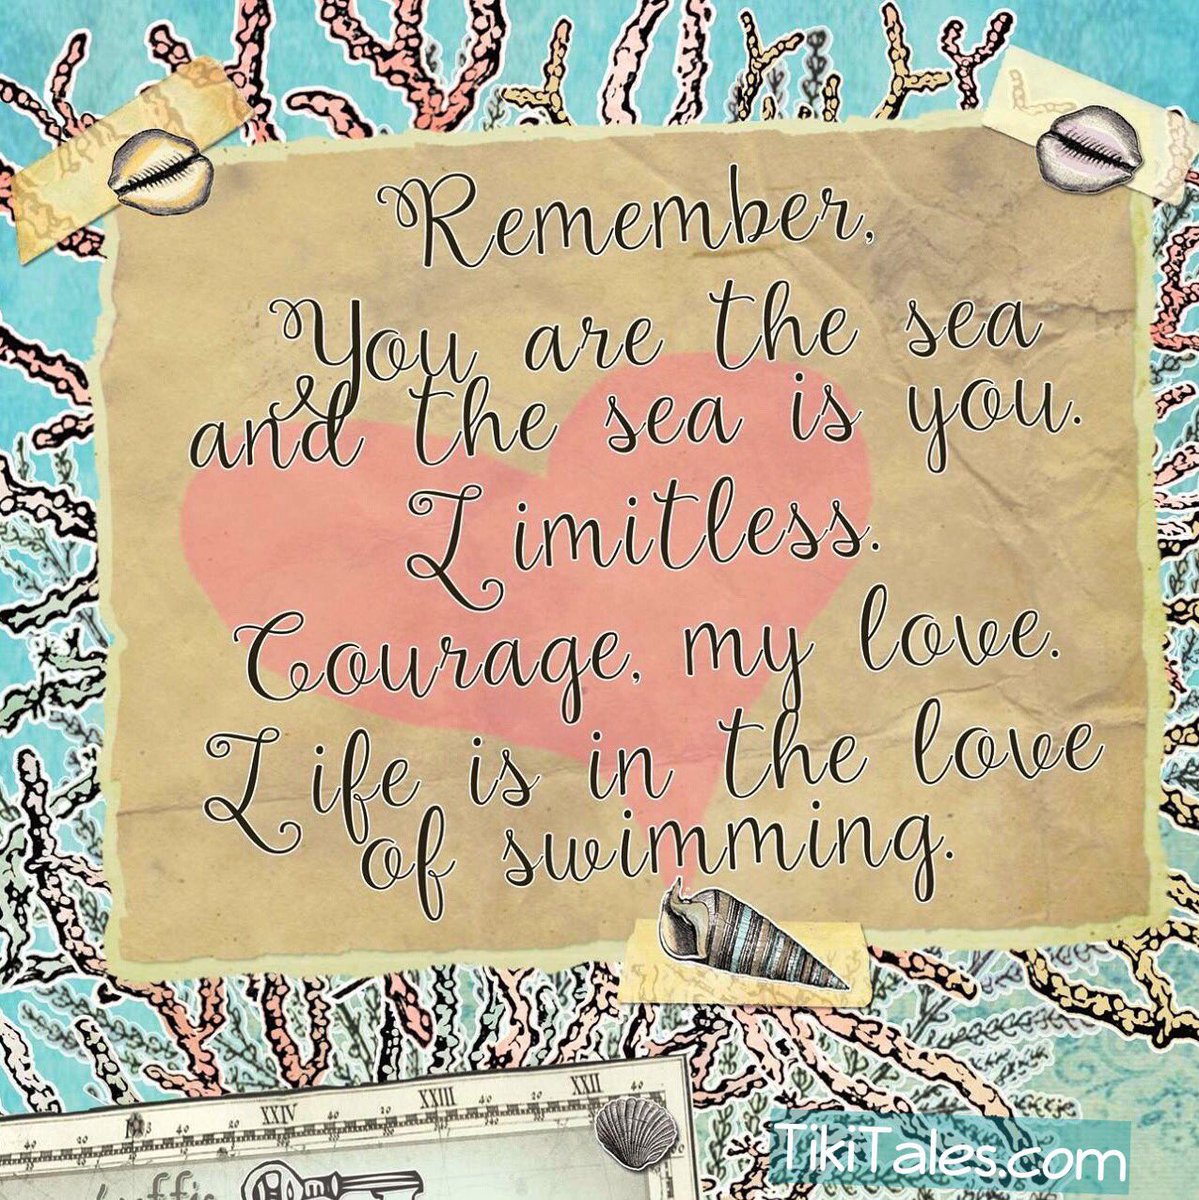 Remember,
You are the sea
and the sea is you.
Limitless.
Courage, my love.
Life is in the love
of swimming.
XXIV XXIII XXII
TikiTales.com